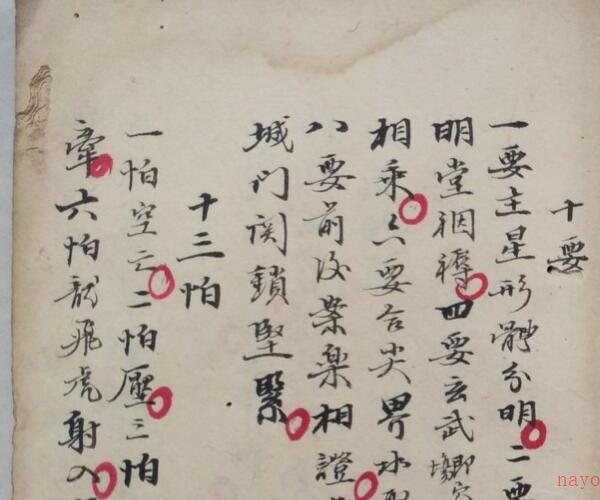 十要
一要主星形體分明二要
明堂裀褥四要玄武
相乘六要合尖界水
八要前後案樂相證
城門関鎖堅緊
十三怕
一怕空亡二怕壓三怕
牽六怕龍飛虎射八
nayo